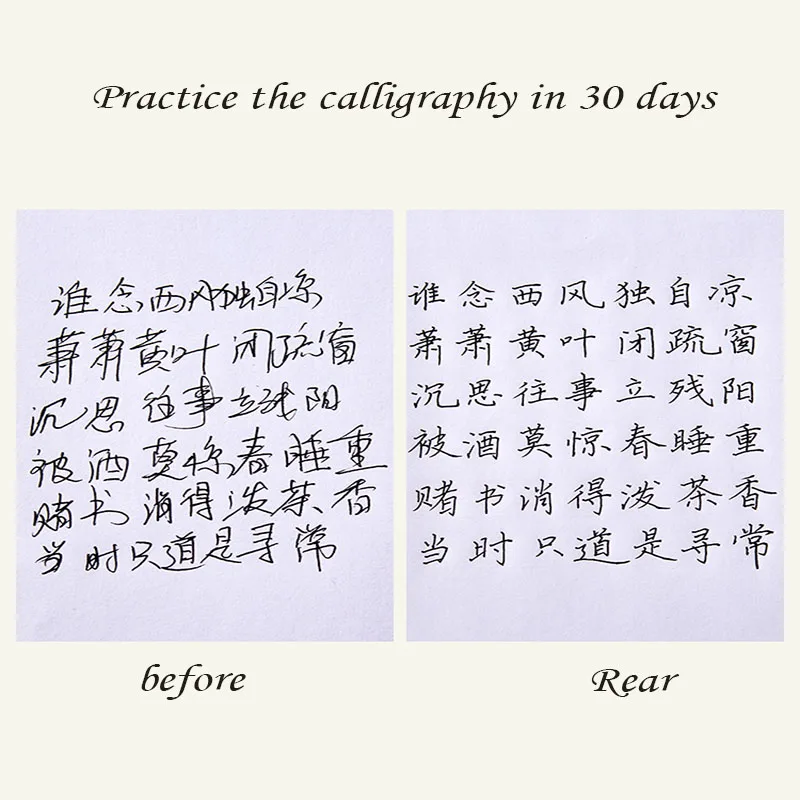 Practice the calligraphy in 30 days
谁念西风独自凉
萧萧黄叶闭疏窗
沉思往事立残阳
被酒莫惊春睡重
赌书消得泼茶香
当时只道是寻常
谁念西风独自凉
萧萧黄叶闭疏窗
沉思往事立残阳
被酒莫惊春睡重
赌书消得泼茶香
当时只道是寻常
before
Rear